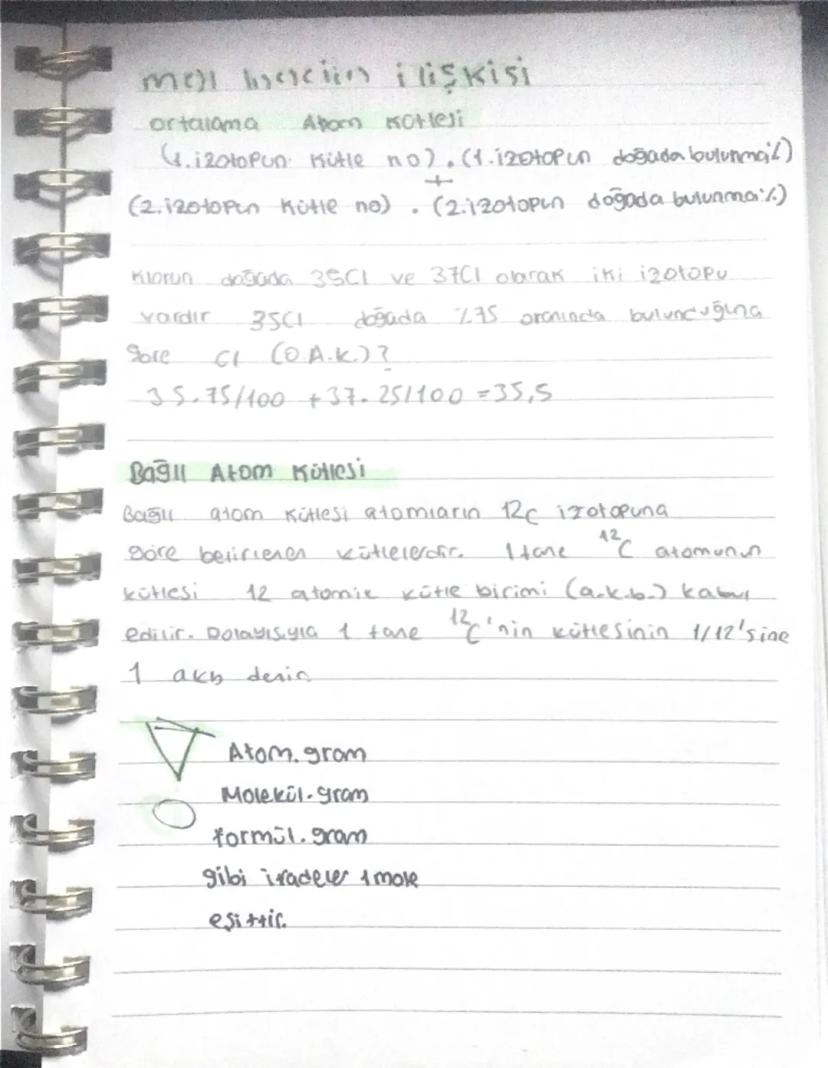 mol ilişkisi
ortalama Atom Kütlesi
(1.izotopun kütle no) . (1.izotopun doğada bulunma%)
+
(2.izotopun kütle no) . (2.izotopun doğada bulunma%)
Klorun doğada 35Cl ve 37Cl olarak iki izotopu
vardır 35Cl doğada %75 oranında bulunduğuna
göre Cl (O.A.K.)?
35.75/100 + 37.25/100 = 35,5
Bağıl Atom Kütlesi
Bağıl atom kütlesi atomların 12C izotopuna
göre belirlenen kütlelerdir. 1 tane ¹²C atomunun
kütlesi 12 atomik kütle birimi (a.k.b.) kabul
edilir. Dolayısıyla 1 tane ¹²C'nin kütlesinin 1/12'sine
1 akb denir
Atom.gram
Molekül.gram
formül.gram
gibi ifadeler 1 mole
eşittir.